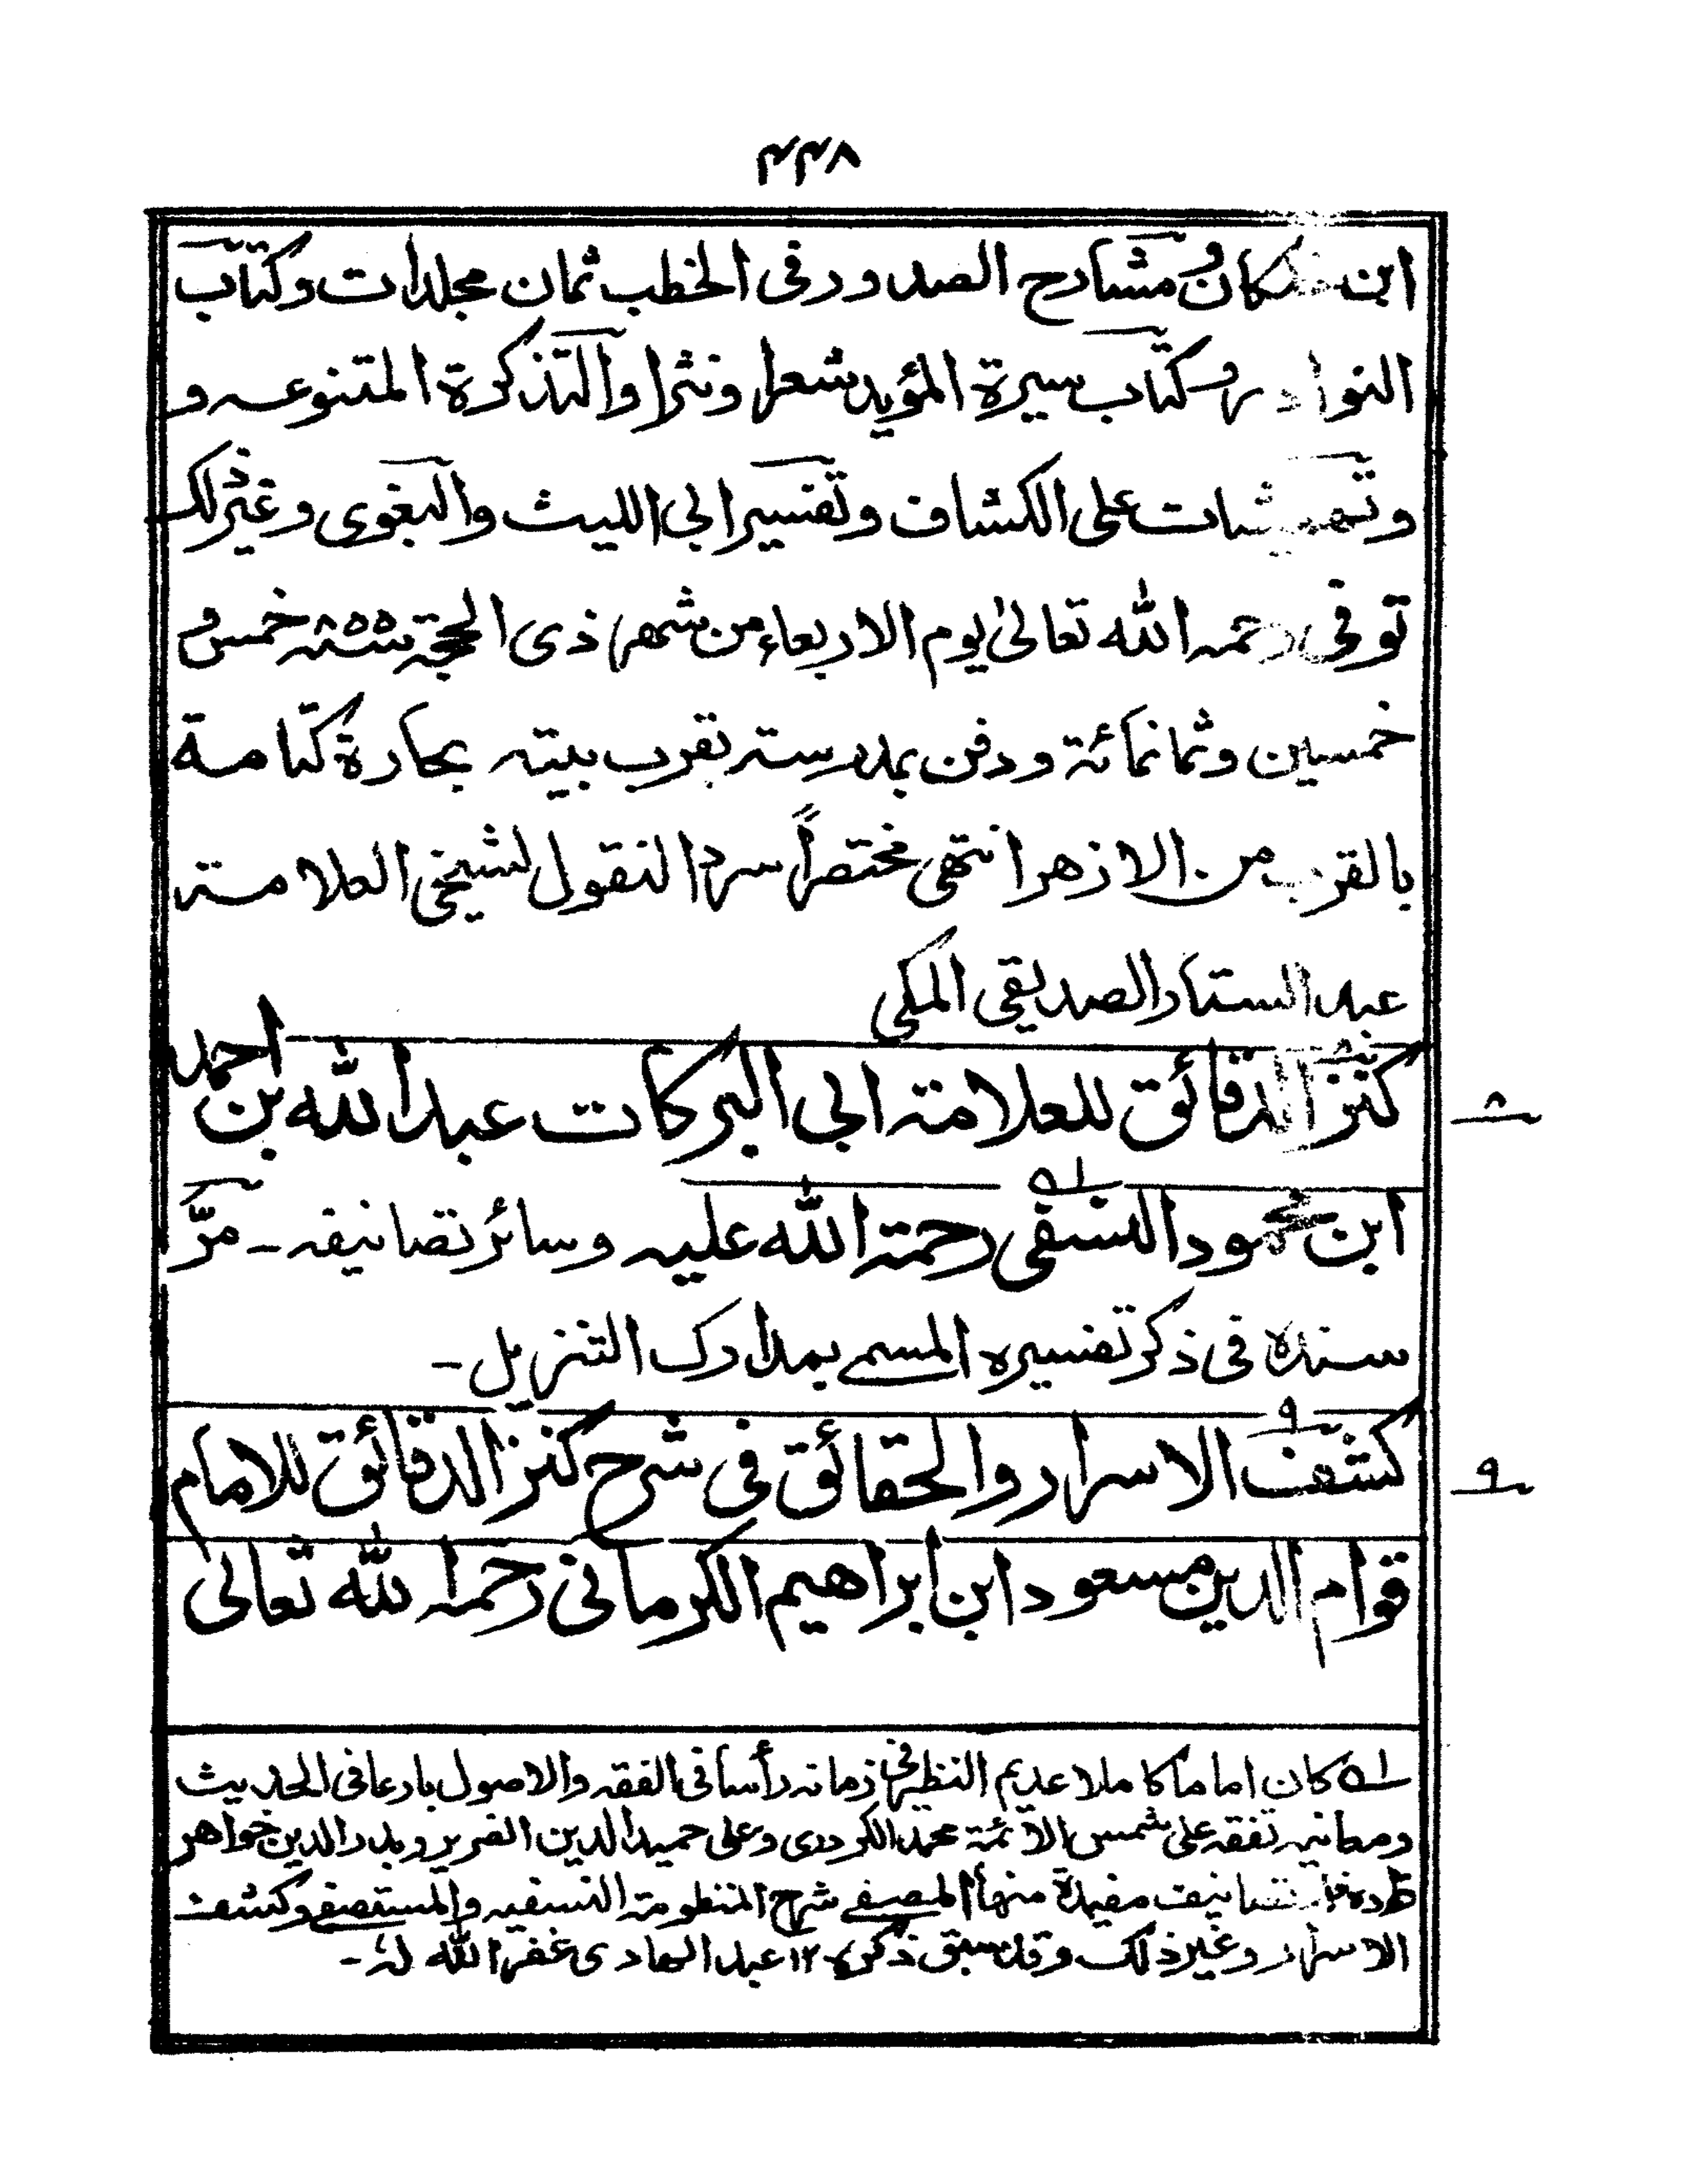 ٤٤٨
ابن خلكان ومشارح الصدور فى الخطب ثمان مجلدات وكتاب
النوادر وكتاب سيرة المؤيد شعرا ونثرا والتذكرة المتنوعه و
وتهميشات على الكشاف وتفسير ابى الليث والبغوى وغير ذلك
توفى رحمه الله تعالىٰ يوم الاربعاء من شهر ذى الحجة سنة ٨٥٥ خمس و
خمسين وثمانمائة ودفن بمدرسته بقرب بيته بحارة كتامة
بالقرب من الازهر انتهى مختصراً سرد النقول لشيخى العلامة
عبد الستار الصديقى المكى
٨ كنز الدقائق للعلامة ابى البركات عبد الله بن احمد
ابن محمود النسفى لـ٥ رحمة الله عليه وسائر تصانيفه ـ مرّ
سنده فى ذكر تفسيره المسمى بمدارك التنزيل ـ
٩ كشف الاسرار والحقائق فى شرح كنز الدقائق للامام
قوام الدين مسعود ابن ابراهيم الكرمانى رحمه الله تعالى
لـ٥ كان اماما كاملا عديم النظير فى زمانه رأسا فى الفقه والاصول بارعا فى الحديث
ومعانيه تفقه على شمس الائمة محمد الكردرى وعلى حميد الدين الضرير وبدر الدين خواهر
زاده تصانيف مفيدة منها المصفى شرح المنظومة النسفيه والمستصفى وكشف
الاسرار وغير ذلك وقد سبق ذكره ١٢ عبد الهادى غفر الله لهٗ ـ